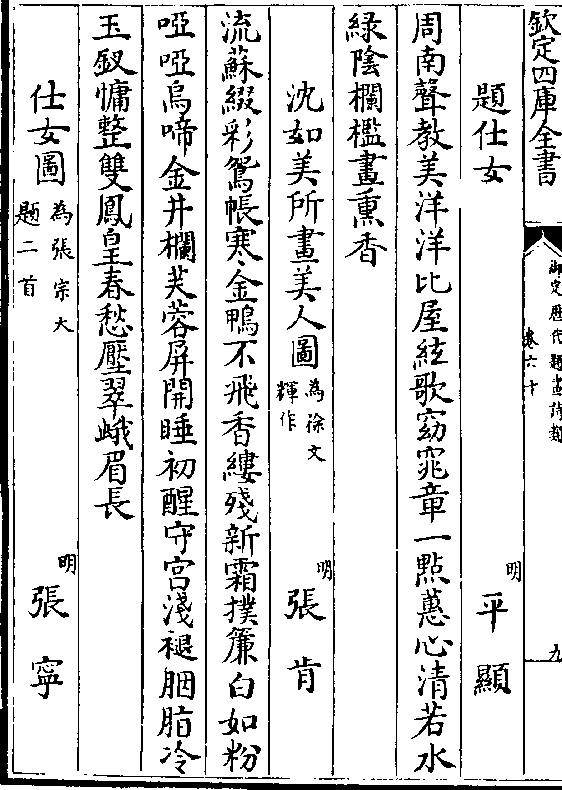 欽定四庫全書
御定歴代題畫詩類
卷六十
九
題仕女
明
平顯
周南聲教美洋洋比屋絃歌窈窕章一點蕙心清若水
綠陰欄檻晝熏香
沈如美所畫美人圖
為徐文
輝作
明
張肯
流蘇綴彩鴛帳寒金鴨不飛香縷殘新霜撲簾白如粉
啞啞烏啼金井欄芙蓉屏開睡初醒守宮淺褪胭脂冷
玉釵慵整雙鳳皇春愁壓翠蛾眉長
仕女圖
為張宗大
題二首
明
張寧